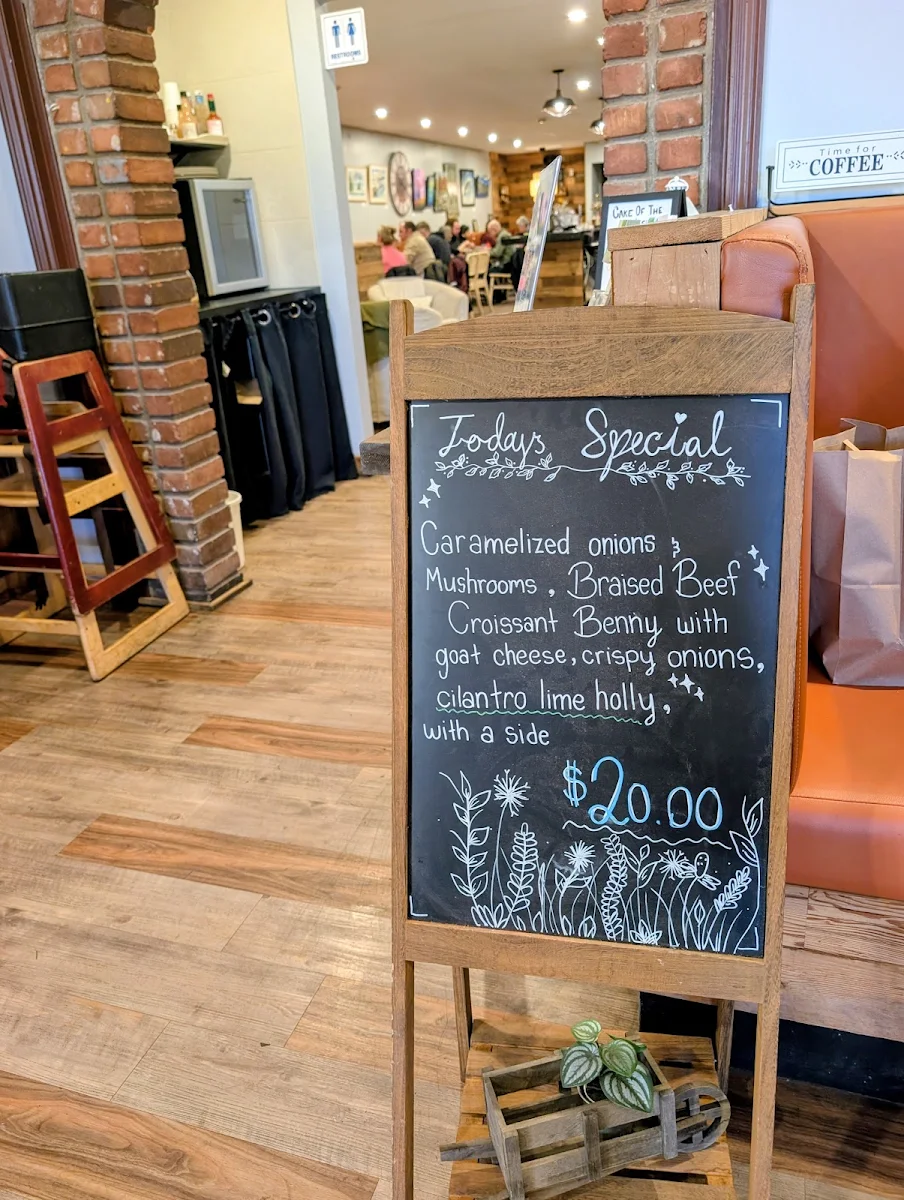 RESTROOMS
Time for
COFFEE
CAKE OF THE
Todays Special
Caramelized onions &
Mushrooms, Braised Beef
Croissant Benny with
goat cheese, crispy onions,
cilantro lime holly,
with a side
$20.00